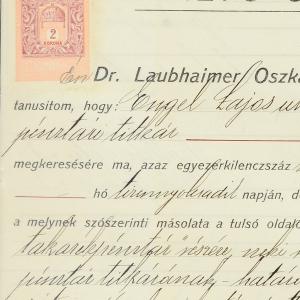 2
KORONA
Én Dr. Laubhaimer Oszká
tanusitom, hogy: Engel Lajos ur
pénztári titkár
megkeresésére ma, azaz egyezerkilenczszáz
hó tizennyolcadik napján, d
a melynek szószerinti másolata a tulsó oldal
takarékpénztár részére, neki
pénztár titkárának - határ